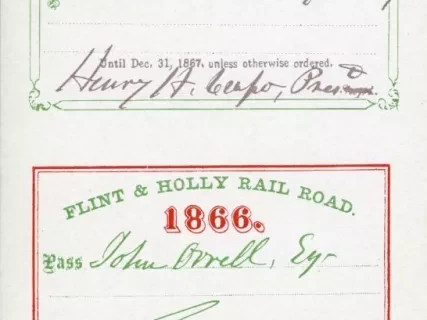 Until Dec. 31, 1867, unless otherwise ordered.
Henry H. Crapo, Pres.d
FLINT & HOLLY RAIL ROAD.
1866.
Pass John Orrell, Esq